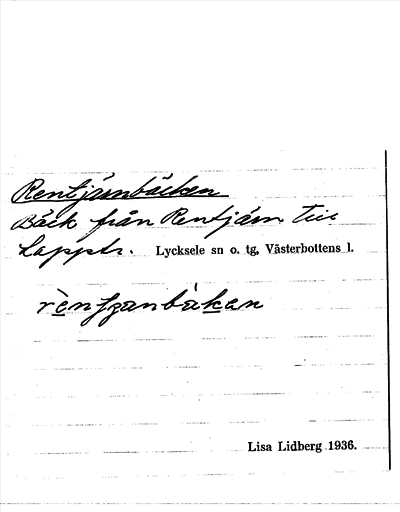 Rentjärnbäcken
Bäck från Rentjärn till
Lapptr. Lycksele sn o. tg, Västerbottens l.
Lisa Lidberg 1936.